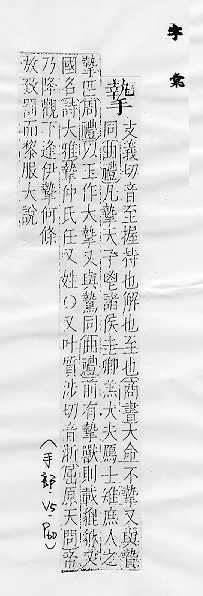 字彙
摯
支義切音至握持也解也至也商書大命不摯又與贄
同曲禮凡摯天子鬯諸侯圭卿羔大夫鴈士雉庶人之
摯匹周禮以玉作大摯又與鷙同曲禮前有摯獸則載貔貅又
國名詩大雅摯仲氏任又姓〇又叶質涉切音浙屈原天問帝
乃降觀下逢伊摯何條
放致罰而黎服大說
（手部 V5-P40）